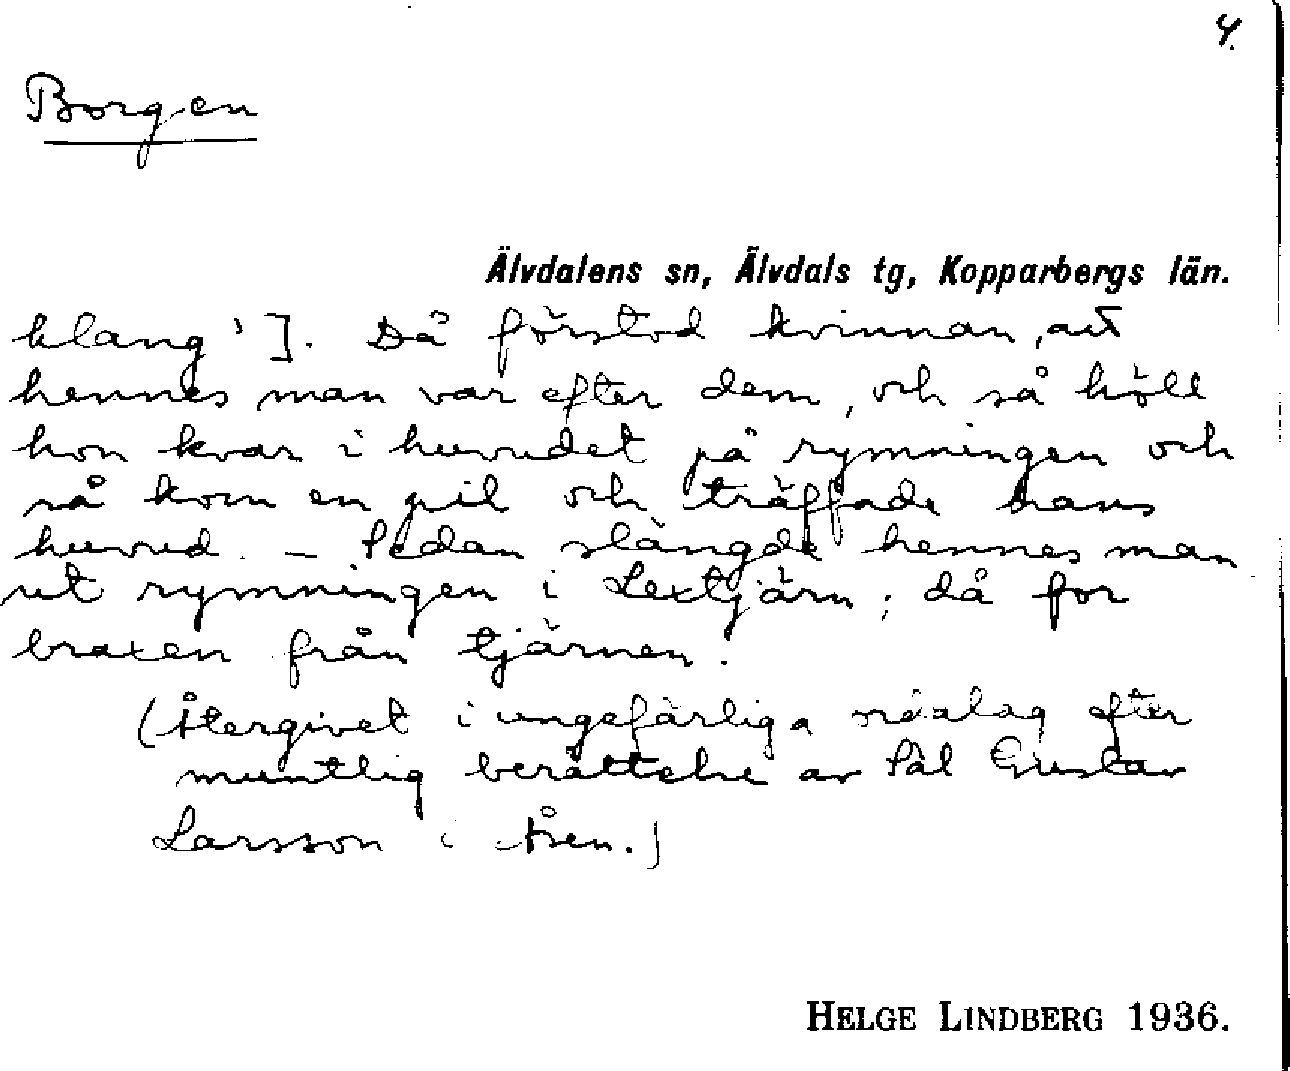 4.
Borgen
Älvdalens sn, Älvdals tg, Kopparbergs län.
klang']. Då förstod kvinnan, att
hennes man var efter dem, och så höll
hon kvar i huvudet på rymningen och
så kom en pil och träffade hans
huvud. – Sedan slängde hennes man
ut rymningen i Lextjärn; då for
braxen från tjärnen.
(Återgivet i ungefärliga ordalag efter
muntlig berättelse av Pål Gustav
Larsson i Åsen.)
HELGE LINDBERG 1936.